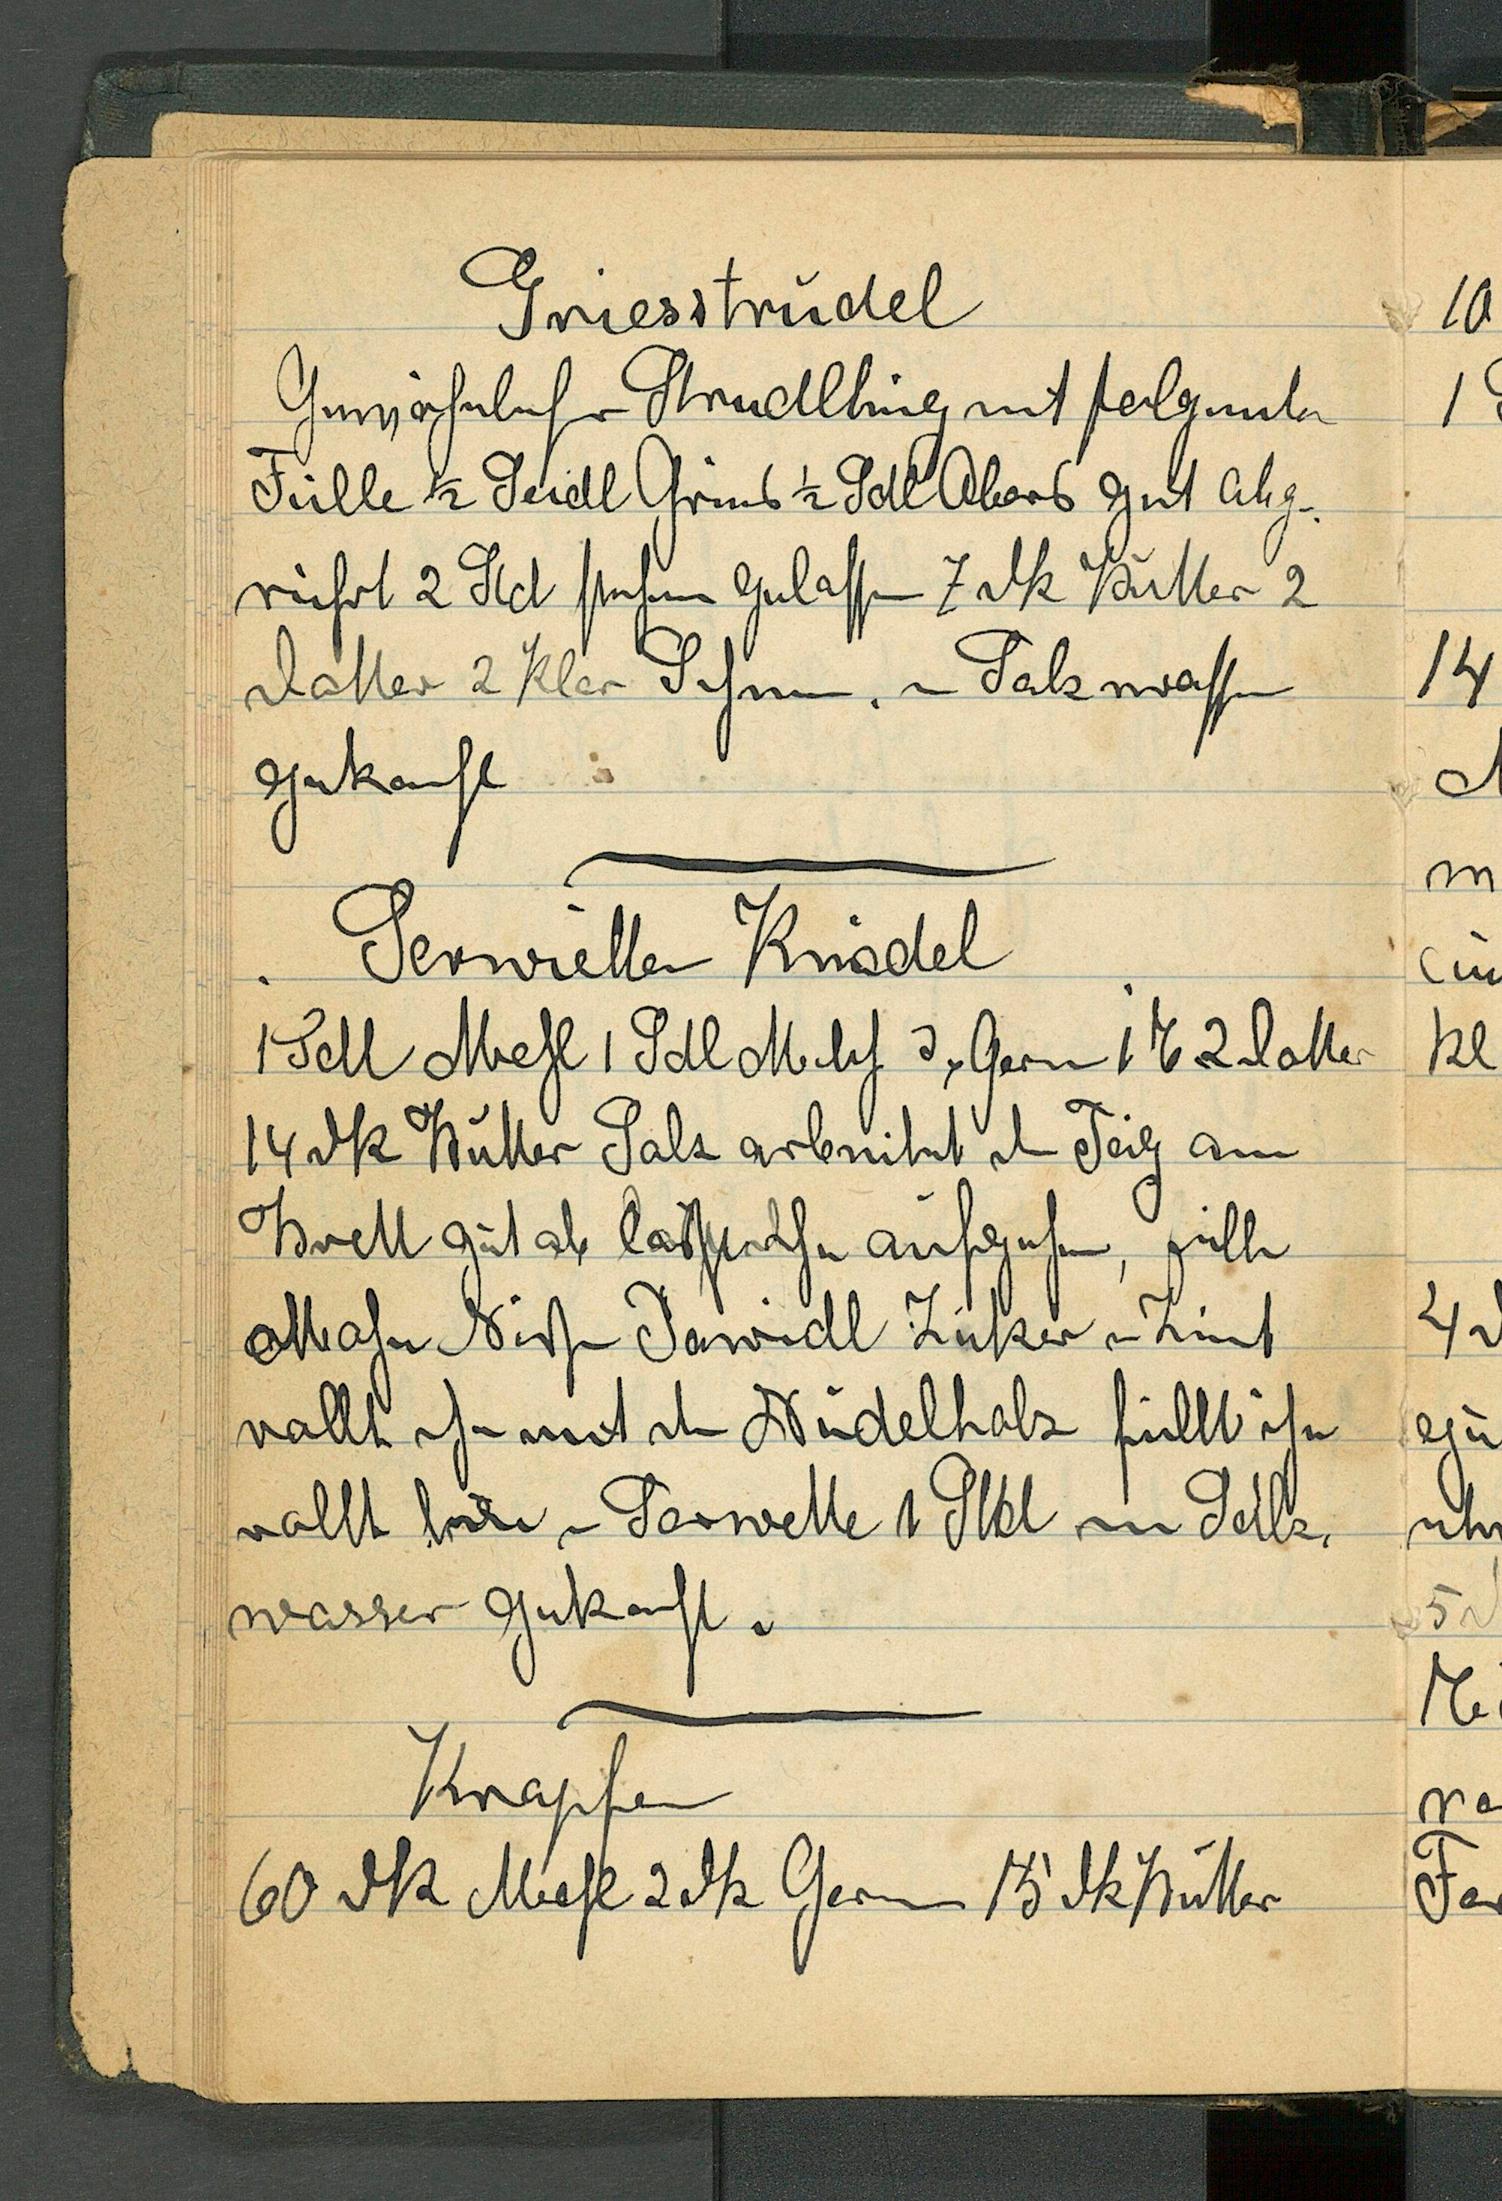 Griesstrudel
Gewöhnlicher Strudlteig mit folgender
Fülle ½ Seidl Gries ½ Sdl Obers gut abge-
rührt 2 Std stehen gelassen 7 dk Butter 2
Dotter 2 Klar Schnee. in Salzwasser
gekocht
Serwietten Knödel
1 Sdl Mehl 1 Sdl Milch Germ 2 Dotter
14 dk Butter Salz arbeitet den Teig am
Brett gut ab lasst ihn aufgehen, fülle
Mohn Nüsse Powidl Zuker u Zimt
rollt ihn mit dem Nudelholz füllt ihn
rollt Serwette 1 Std in Salz.
wasser gekocht.
Krapfen
60 dk Mehl 2 dk Germ 15 dk Butter
10
1
14
m
ein
kl
5